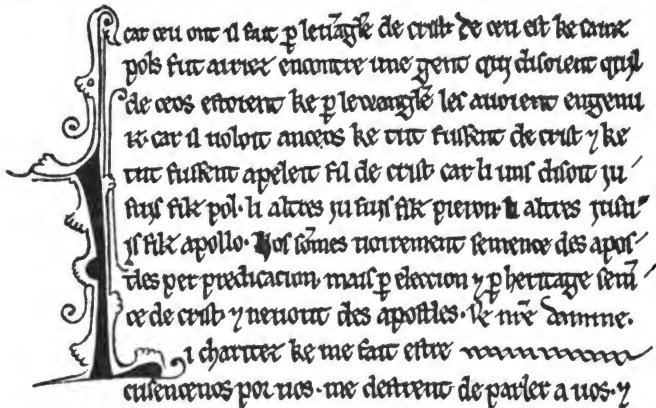 car ceu ont il fait p leuāgle de crist de ceu est ke sainz
pols fut auriez encontre une gent qui disoient quil
de ceos estoient ke p lewangle les auoient engenui
iz car il uoloit anceos ke tut fussent de crist ⁊ ke
tut fussent apeleit fil de crist car li uns disoit iu
suys filz pol · li altres iu suys filz pieron · li altres iu sui
js filz apollo · Nos sōmes uoirement semence des apos
tles per predicacion mais p eleccion ⁊ p heritage sem̄
ce de crist ⁊ des apostles · Se nr̄e
Li charitez ke me fait estre
cusencenos por uos · me destrent de parler a uos · ⁊